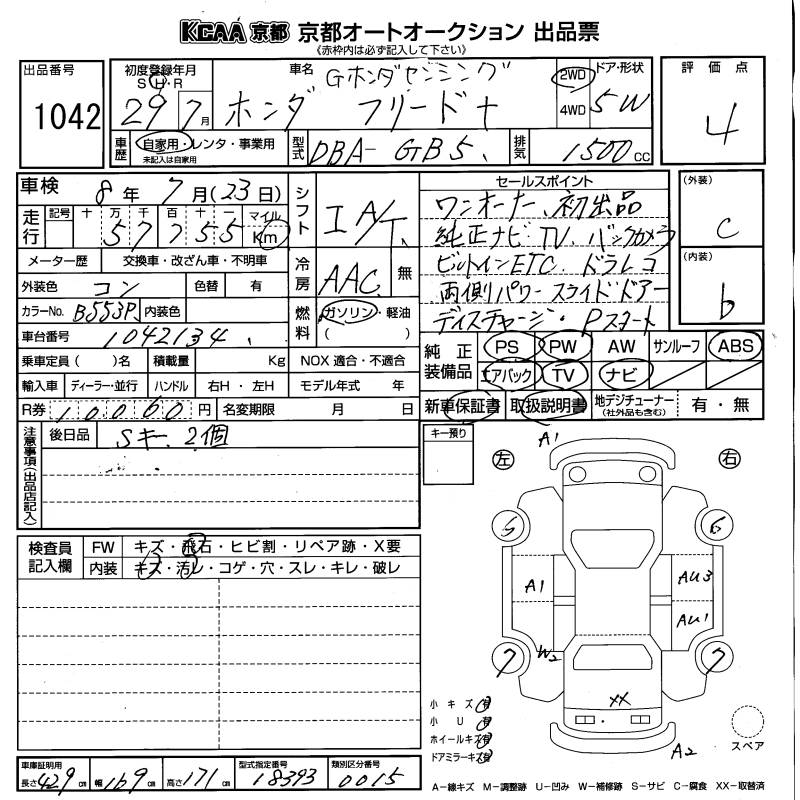 KCAA 京都 京都オートオークション 出品票
《赤枠内は必ず記入して下さい》
出品番号
1042
初度登録年月
S・H・R
29 7月
車名
Gホンダセンシング
ホンダ フリード+
2WD
4WD
ドア・形状
5W
評価点
4
車歴
自家用・レンタ・事業用
未記入は自家用
型式
DBA-GB5
排気
1500cc
車検
8年 7月(23日)
走行
記号 十 万 千 百 十 一 マイル
57755 Km
シフト
IA/T
セールスポイント
ワンオーナー、初出品
純正ナビ・TV、バックカメラ
ビルトインETC、ドラレコ
両側パワースライドドアー
ディスチャージ・Pスタート
(外装)
C
(内装)
b
メーター歴 交換車・改ざん車・不明車
冷房
AAC 無
外装色 コン 色替 有
カラーNo. B553P 内装色
燃料
ガソリン・軽油
( )
車台番号 1042134
乗車定員 ( )名 積載量 Kg NOX 適合・不適合
輸入車 ディーラー・並行 ハンドル 右H・左H モデル年式 年
R券 10060円 名変期限 月 日
純正装備品
PS PW AW サンルーフ ABS
エアバック TV ナビ
新車保証書 取扱説明書 地デジチューナー
(社外品も含む) 有・無
注意事項(出品店記入)
後日品 Sキー2個
キー預り
検査員記入欄
FW キズ・飛石・ヒビ割・リペア跡・X要
内装 キズ・汚レ・コゲ・穴・スレ・キレ・破レ
A1
左 右
5 6
A1 AU3
AU1
7 W2 7
XX
A2
小キズ 有
小U 有
ホイールキズ 有
ドアミラーキズ 有
スペア
車庫証明用
長さ429cm 幅169cm 高さ171cm
型式指定番号
18393
類別区分番号
0015
A―線キズ M―調整跡 U―凹み W―補修跡 S―サビ C―腐食 XX―取替済